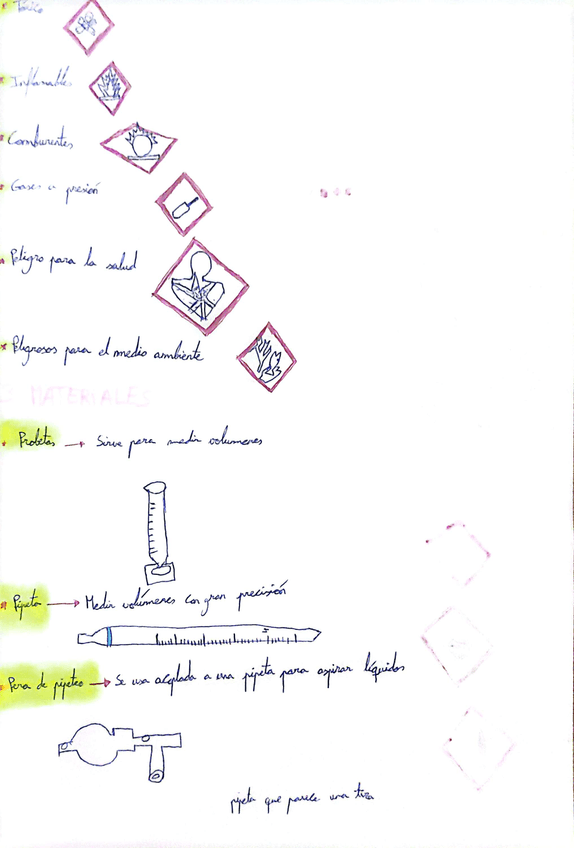 Tóxico
Inflamables
Comburentes
Gases a presión
Peligro para la salud
Peligrosos para el medio ambiente
MATERIALES
Probetas → Sirve para medir volumenes
Pipeta → Medir volúmenes con gran precisión
Pera de pipeteo → Se usa acoplada a una pipeta para aspirar líquidos
pipeta que parece una tiza